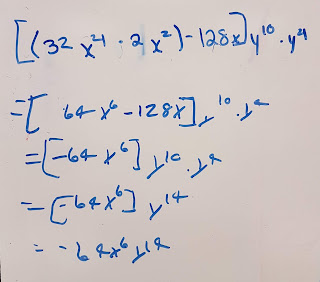 [(32 x⁴ · 2 x²) - 128x] y¹⁰ · y⁴
= [ 64 x⁶ - 128x ] y¹⁰ · y⁴
= [-64 x⁶] y¹⁰ · y⁴
= [-64x⁶] y¹⁴
= -64x⁶y¹⁴